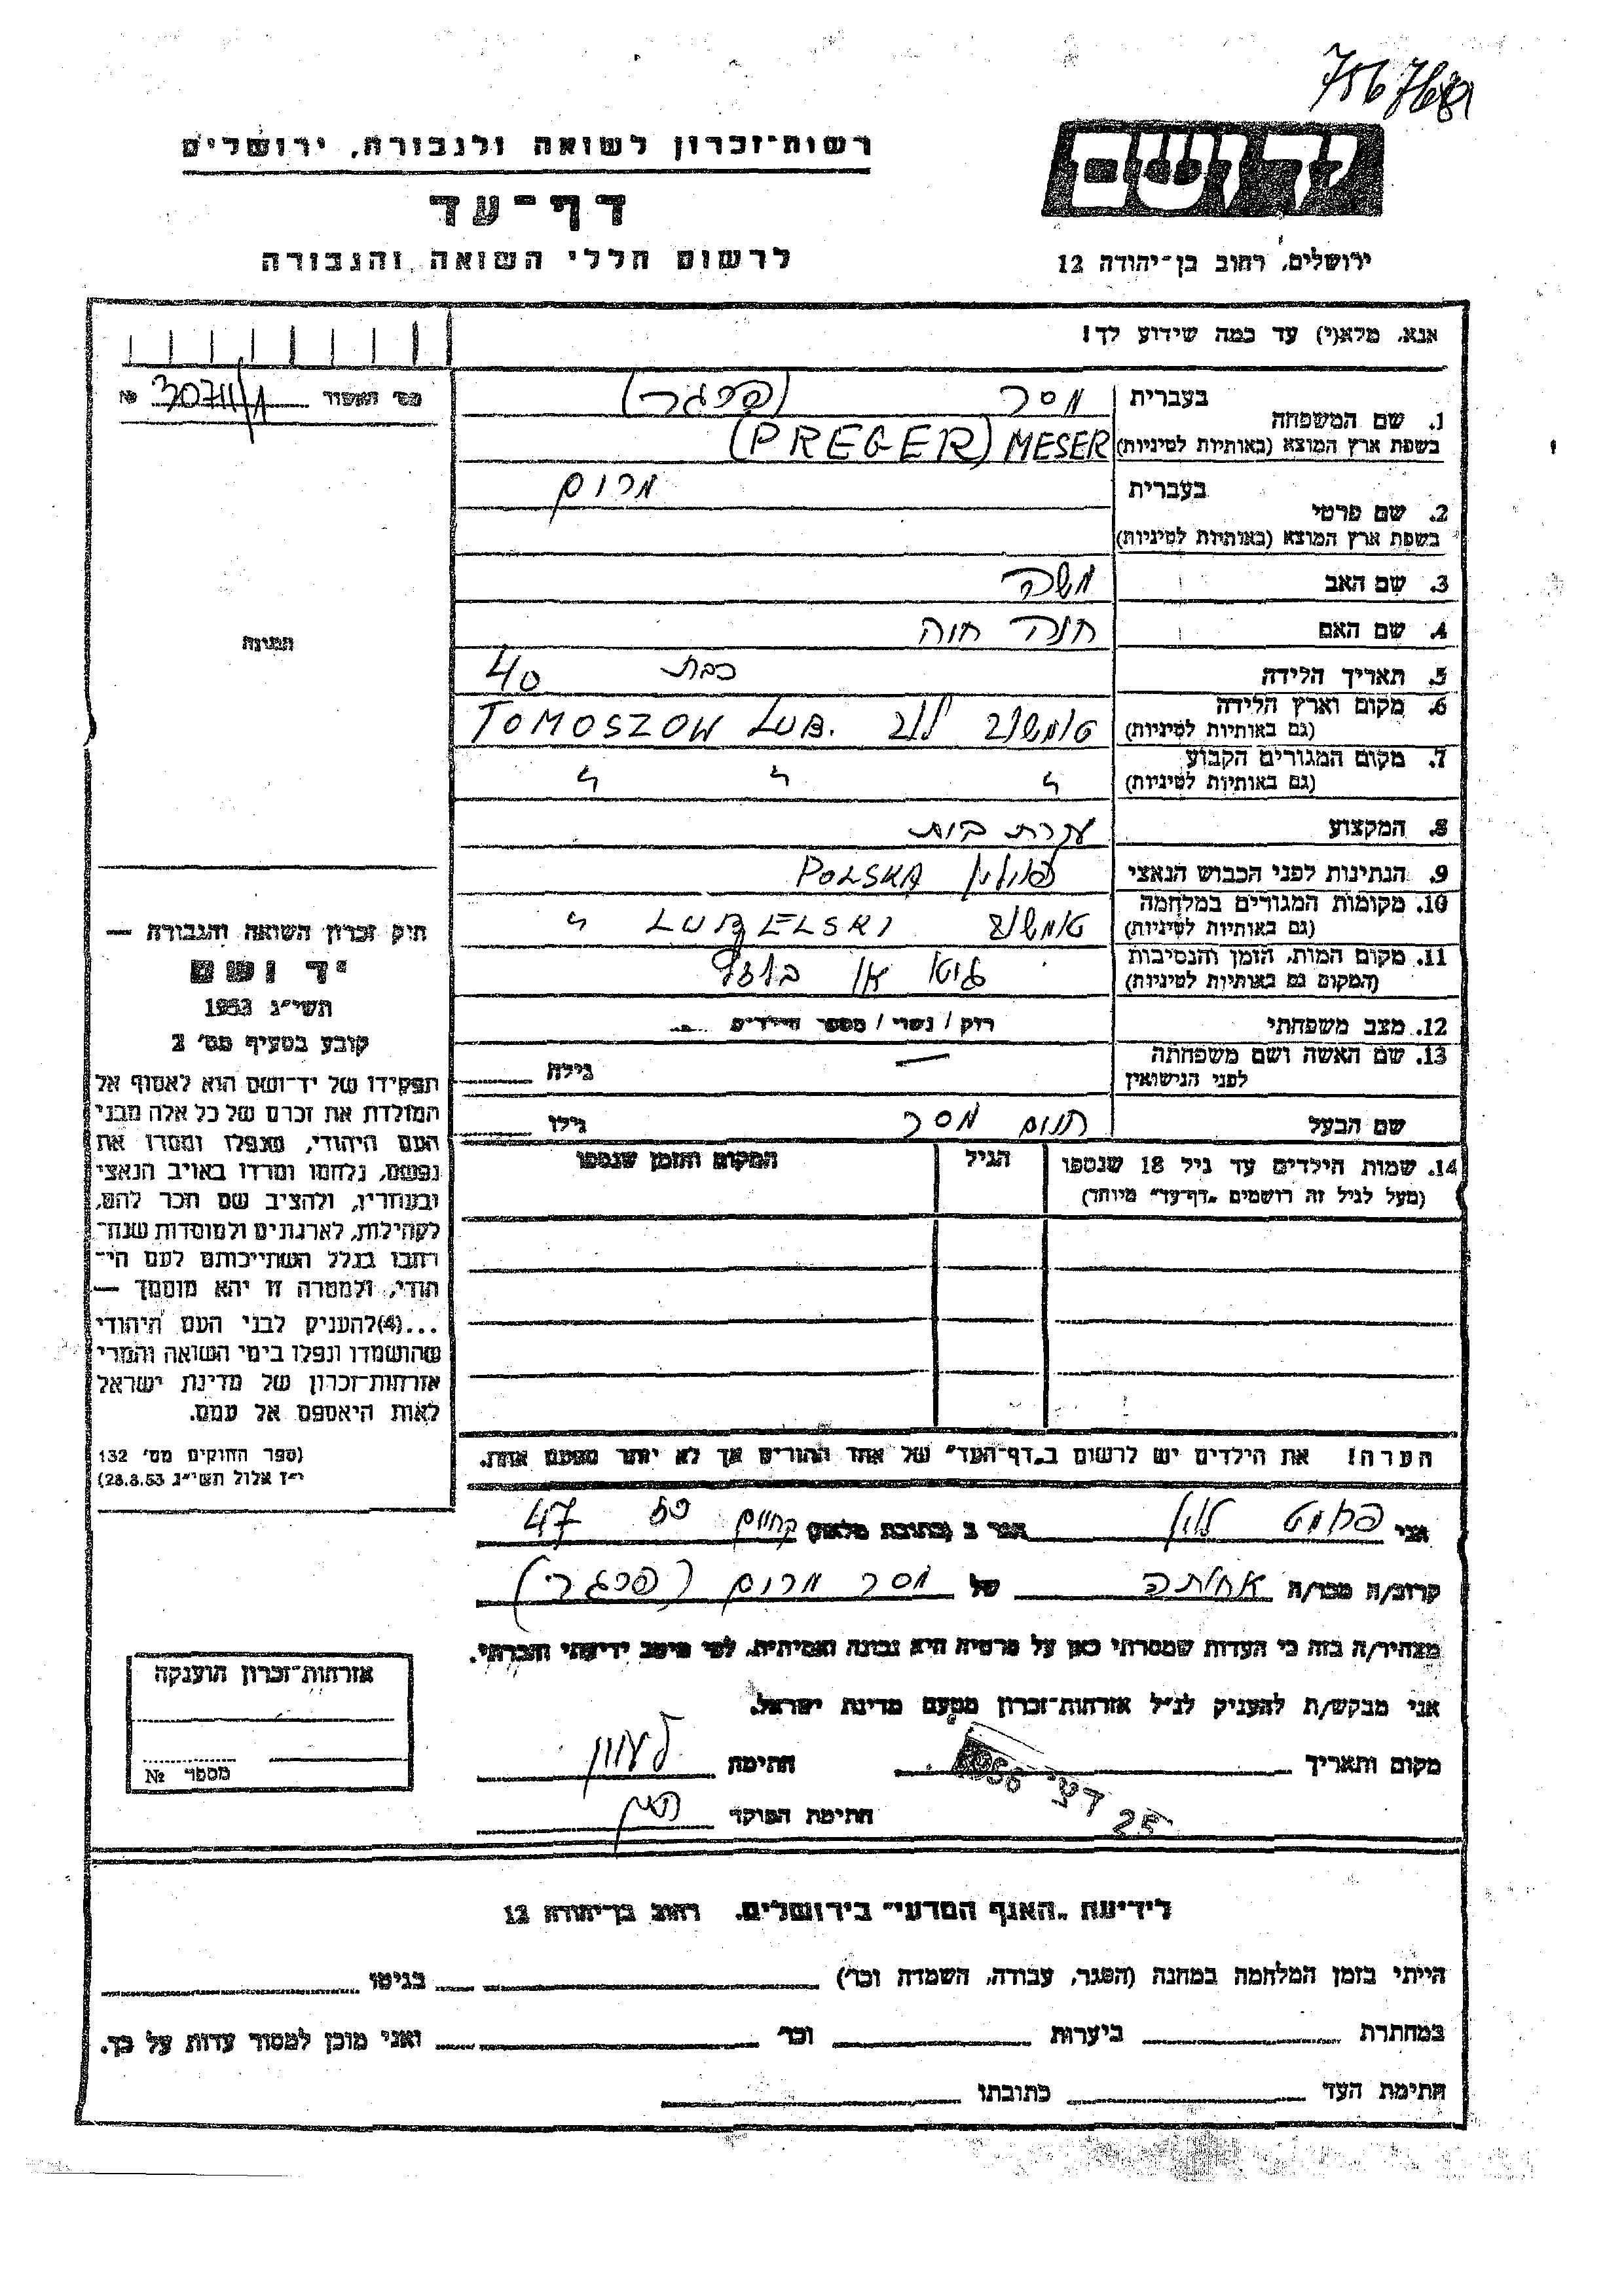 7567689
יד ושם
ירושלים, רחוב בן-יהודה 12
רשות-זכרון לשואה ולגבורה, ירושלים
דף-עד
לרשום חללי השואה והגבורה
אנא, מלא(י) עד כמה שידוע לך!
30711/1 №
1. שם המשפחה
בעברית מסר (פרגר)
בשפת ארץ המוצא (באותיות לטיניות) MESER (PREGER)
2. שם פרטי
בעברית מרים
בשפת ארץ המוצא (באותיות לטיניות)
3. שם האב משה
4. שם האם חנה חוה
5. תאריך הלידה כבת 40
6. מקום וארץ הלידה
(גם באותיות לטיניות) טומשוב לוב TOMOSZOW LUB.
7. מקום המגורים הקבוע
(גם באותיות לטיניות) " " "
8. המקצוע עקרת בית
9. הנתינות לפני הכבוש הנאצי פולין POLSKA
10. מקומות המגורים במלחמה
(גם באותיות לטיניות) טומשוב LUBELSKI "
11. מקום המות, הזמן והנסיבות
(המקום גם באותיות לטיניות) גיטו או בלזץ
12. מצב משפחתי רווק / נשוי / מספר הילדים
13. שם האשה ושם משפחתה
לפני הנישואין — גילה
שם הבעל תנחום מסר גילו
14. שמות הילדים עד גיל 18 שנספו
(מעל לגיל זה רושמים „דף-עד" מיוחד)
הגיל
המקום והזמן שנספו
הערה! את הילדים יש לרשום ב„דף-העד" של אחד ההורים אך לא יותר מפעם אחת.
התמונה
חוק זכרון השואה והגבורה —
יד ושם
תשי"ג 1953
קובע בסעיף מס' 2
תפקידו של יד-ושם הוא לאסוף אל
המולדת את זכרם של כל אלה מבני
העם היהודי, שנפלו ומסרו את
נפשם, נלחמו ומרדו באויב הנאצי
ובעוזריו, ולהציב שם וזכר להם,
לקהילות, לארגונים ולמוסדות שנח-
רבו בגלל השתייכותם לעם הי-
הודי, ולמטרה זו יהא מוסמך —
...(4)להעניק לבני העם היהודי
שהושמדו ונפלו בימי השואה והמרי
אזרחות-זכרון של מדינת ישראל
לאות היאספם אל עמם.
(ספר החוקים מס' 132
י"ז אלול תשי"ג 28.8.53)
אני לוין הגר ב (כתובת מלאה) 47
קרוב/ה מכר/ה אחותה של מסר מרים (פרגר)
מצהיר/ה בזה כי העדות שמסרתי כאן על פרטיה היא נכונה ואמיתית, לפי מיטב ידיעתי והכרתי.
אני מבקש/ת להעניק לנ"ל אזרחות-זכרון מטעם מדינת ישראל.
מקום ותאריך 25 דצ' 1956 חתימה
חתימת הפוקד
אזרחות-זכרון הוענקה
מספר №
לידיעת „האגף המדעי" בירושלים, רחוב בן-יהודה 12
הייתי בזמן המלחמה במחנה (הסגר, עבודה, השמדה וכו') בגיטו
במחתרת ביערות וכו' ואני מוכן למסור עדות על כך.
חתימת העד כתובתו